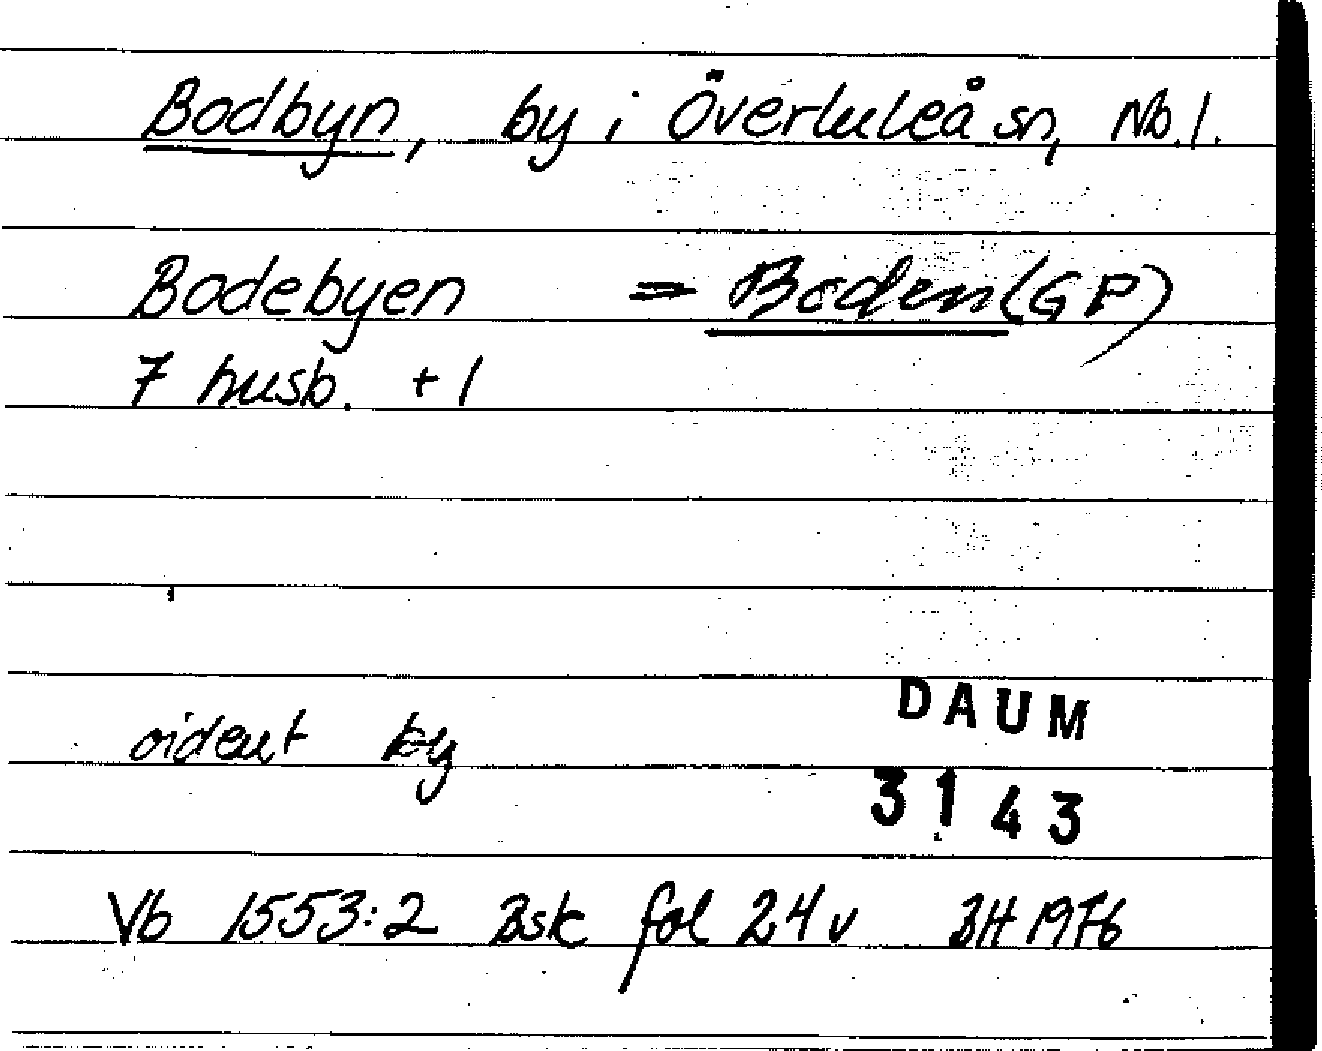 Bodbyn, by i Överluleå sn, Nb. l.
Bodebyen = Boden (GP)
7 husb. + 1
oident by
DAUM
3143
Vb 1553:2 Bsk fol 24 v BH 1976